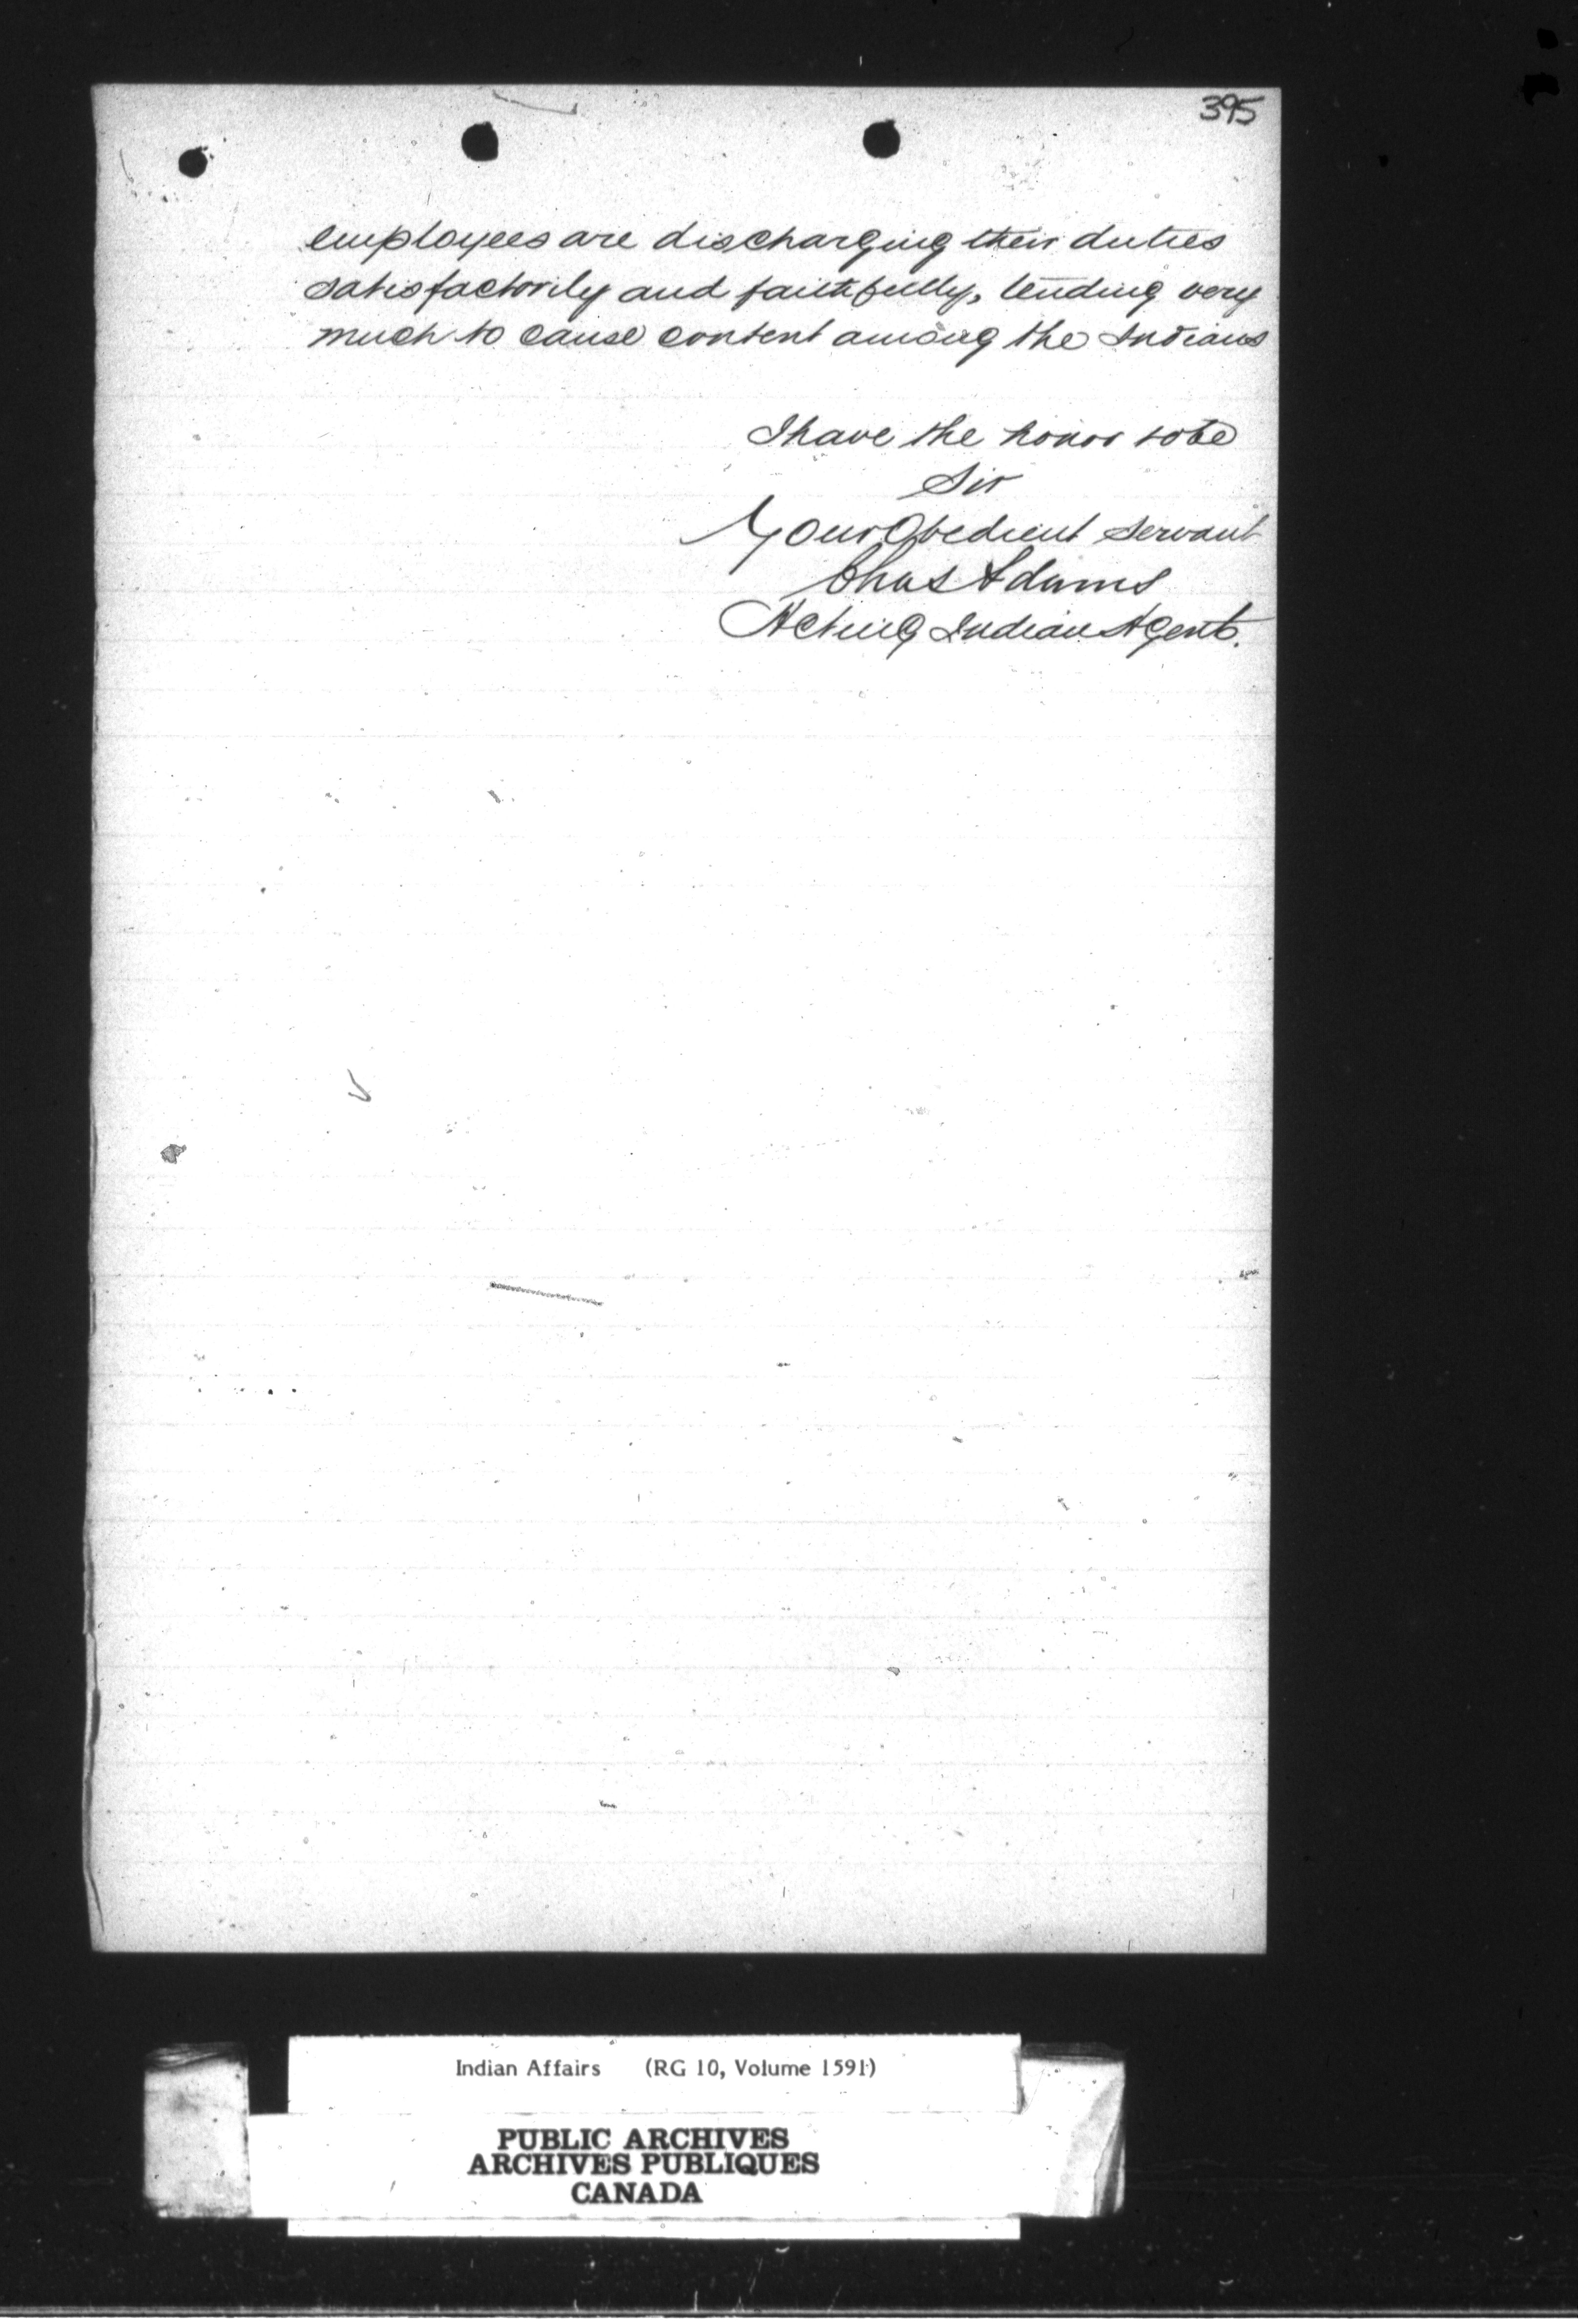 395
employees are discharging their duties
satisfactorily and faithfully, tending very
much to cause content among the Indians
I have the honor to be
Sir
Your Obedient Servant
Chas Adams
Acting Indian Agent.
Indian Affairs (RG 10, Volume 1591)
PUBLIC ARCHIVES
ARCHIVES PUBLIQUES
CANADA